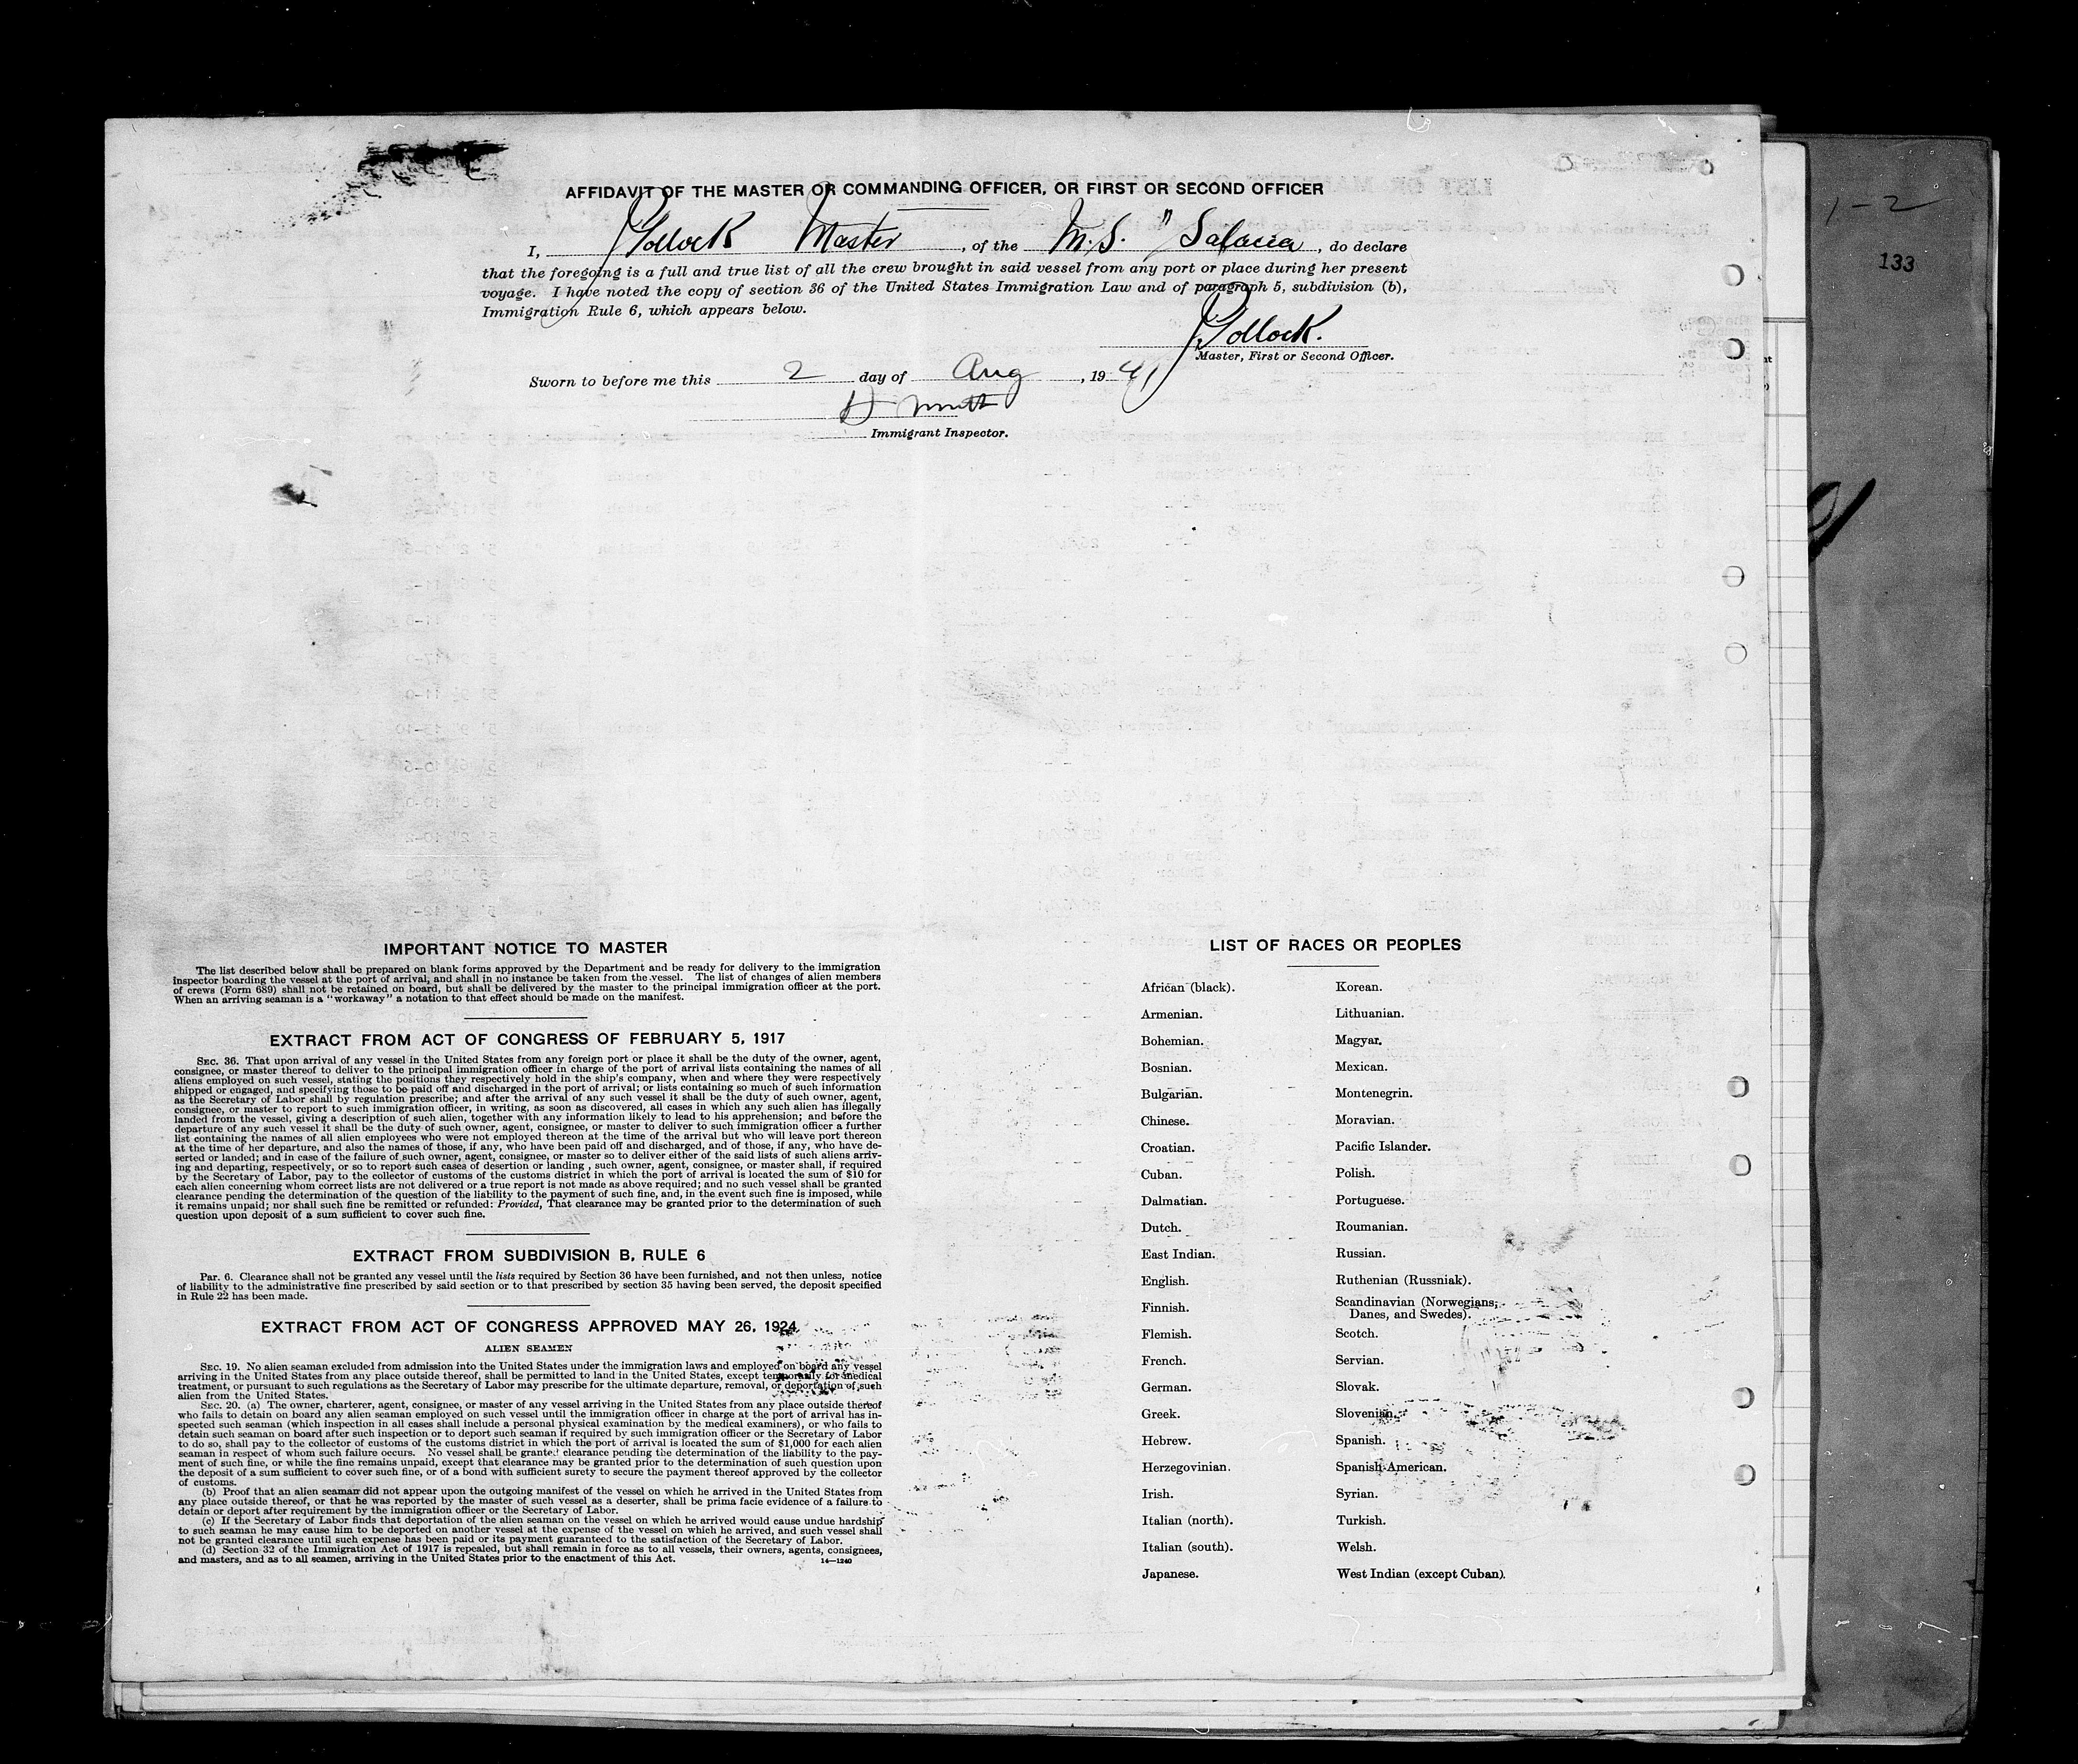 AFFIDAVIT OF THE MASTER OR COMMANDING OFFICER, OR FIRST OR SECOND OFFICER
I, J Pollock Master, of the M.S. "Salacia, do declare
that the foregoing is a full and true list of all the crew brought in said vessel from any port or place during her present
voyage. I have noted the copy of section 36 of the United States Immigration Law and of paragraph 5, subdivision (b),
Immigration Rule 6, which appears below.
J Pollock.
Master, First or Second Officer.
Sworn to before me this 2 day of Aug, 1941
Immigrant Inspector.
1-2
133
IMPORTANT NOTICE TO MASTER
The list described below shall be prepared on blank forms approved by the Department and be ready for delivery to the immigration
inspector boarding the vessel at the port of arrival, and shall in no instance be taken from the vessel. The list of changes of alien members
of crews (Form 689) shall not be retained on board, but shall be delivered by the master to the principal immigration officer at the port.
When an arriving seaman is a "workaway" a notation to that effect should be made on the manifest.
EXTRACT FROM ACT OF CONGRESS OF FEBRUARY 5, 1917
SEC. 36. That upon arrival of any vessel in the United States from any foreign port or place it shall be the duty of the owner, agent,
consignee, or master thereof to deliver to the principal immigration officer in charge of the port of arrival lists containing the names of all
aliens employed on such vessel, stating the positions they respectively hold in the ship's company, when and where they were respectively
shipped or engaged, and specifying those to be paid off and discharged in the port of arrival; or lists containing so much of such information
as the Secretary of Labor shall by regulation prescribe; and after the arrival of any such vessel it shall be the duty of such owner, agent,
consignee, or master to report to such immigration officer, in writing, as soon as discovered, all cases in which any such alien has illegally
landed from the vessel, giving a description of such alien, together with any information likely to lead to his apprehension; and before the
departure of any such vessel it shall be the duty of such owner, agent, consignee, or master to deliver to such immigration officer a further
list containing the names of all alien employees who were not employed thereon at the time of the arrival but who will leave port thereon
at the time of her departure, and also the names of those, if any, who have been paid off and discharged, and of those, if any, who have de-
serted or landed; and in case of the failure of such owner, agent, consignee, or master so to deliver either of the said lists of such aliens arriv-
ing and departing, respectively, or so to report such cases of desertion or landing , such owner, agent, consignee, or master shall, if required
by the Secretary of Labor, pay to the collector of customs of the customs district in which the port of arrival is located the sum of $10 for
each alien concerning whom correct lists are not delivered or a true report is not made as above required; and no such vessel shall be granted
clearance pending the determination of the question of the liability to the payment of such fine, and, in the event such fine is imposed, while
it remains unpaid; nor shall such fine be remitted or refunded: Provided, That clearance may be granted prior to the determination of such
question upon deposit of a sum sufficient to cover such fine.
EXTRACT FROM SUBDIVISION B, RULE 6
Par. 6. Clearance shall not be granted any vessel until the lists required by Section 36 have been furnished, and not then unless, notice
of liability to the administrative fine prescribed by said section or to that prescribed by section 35 having been served, the deposit specified
in Rule 22 has been made.
EXTRACT FROM ACT OF CONGRESS APPROVED MAY 26, 1924
ALIEN SEAMEN
SEC. 19. No alien seaman excluded from admission into the United States under the immigration laws and employed on board any vessel
arriving in the United States from any place outside thereof, shall be permitted to land in the United States, except temporarily for medical
treatment, or pursuant to such regulations as the Secretary of Labor may prescribe for the ultimate departure, removal, or deportation of such
alien from the United States.
SEC. 20. (a) The owner, charterer, agent, consignee, or master of any vessel arriving in the United States from any place outside thereof
who fails to detain on board any alien seaman employed on such vessel until the immigration officer in charge at the port of arrival has in-
spected such seaman (which inspection in all cases shall include a personal physical examination by the medical examiners), or who fails to
detain such seaman on board after such inspection or to deport such seaman if required by such immigration officer or the Secretary of Labor
to do so, shall pay to the collector of customs of the customs district in which the port of arrival is located the sum of $1,000 for each alien
seaman in respect of whom such failure occurs. No vessel shall be granted clearance pending the determination of the liability to the pay-
ment of such fine, or while the fine remains unpaid, except that clearance may be granted prior to the determination of such question upon
the deposit of a sum sufficient to cover such fine, or of a bond with sufficient surety to secure the payment thereof approved by the collector
of customs.
(b) Proof that an alien seaman did not appear upon the outgoing manifest of the vessel on which he arrived in the United States from
any place outside thereof, or that he was reported by the master of such vessel as a deserter, shall be prima facie evidence of a failure to
detain or deport after requirement by the immigration officer or the Secretary of Labor.
(c) If the Secretary of Labor finds that deportation of the alien seaman on the vessel on which he arrived would cause undue hardship
to such seaman he may cause him to be deported on another vessel at the expense of the vessel on which he arrived, and such vessel shall
not be granted clearance until such expense has been paid or its payment guaranteed to the satisfaction of the Secretary of Labor.
(d) Section 32 of the Immigration Act of 1917 is repealed, but shall remain in force as to all vessels, their owners, agents, consignees,
and masters, and as to all seamen, arriving in the United States prior to the enactment of this Act.
14—1240
LIST OF RACES OR PEOPLES
African (black).
Armenian.
Bohemian.
Bosnian.
Bulgarian.
Chinese.
Croatian.
Cuban.
Dalmatian.
Dutch.
East Indian.
English.
Finnish.
Flemish.
French.
German.
Greek.
Hebrew.
Herzegovinian.
Irish.
Italian (north).
Italian (south).
Japanese.
Korean.
Lithuanian.
Magyar.
Mexican.
Montenegrin.
Moravian.
Pacific Islander.
Polish.
Portuguese.
Roumanian.
Russian.
Ruthenian (Russniak).
Scandinavian (Norwegians,
Danes, and Swedes).
Scotch.
Servian.
Slovak.
Slovenian.
Spanish.
Spanish-American.
Syrian.
Turkish.
Welsh.
West Indian (except Cuban).